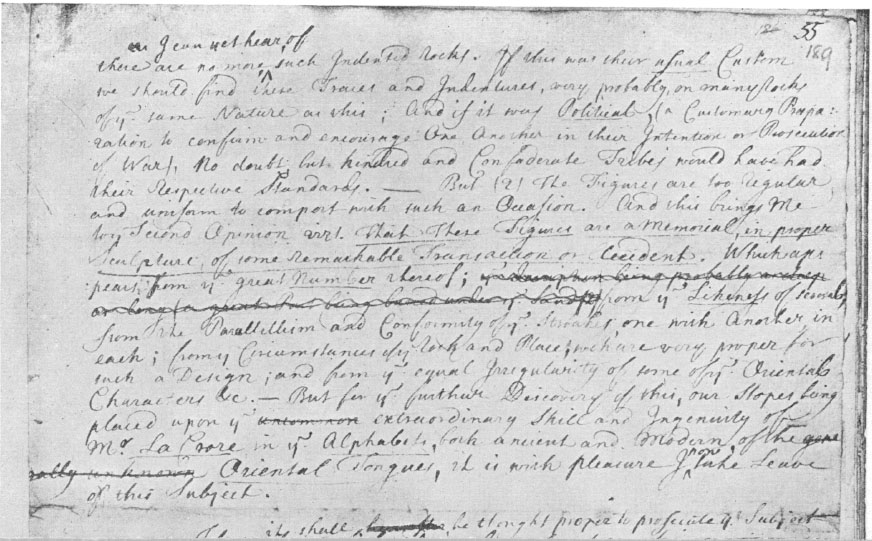 55
189
as I can not hear, of
there are no more such Indented Rocks. If this was their usual Custom
we should find these Traces and Indentures, very probably, on many Rocks
of yͤ same Nature as this; And if it was Political, (a Customary Prepa:
ration to confirm and encourage One Another in their Intention or Prosecution
of War), No doubt but kindred and Confœderate Tribes would have had
their Respective Standards. — But (2) The Figures are too regular
and uniform to comport with such an Occasion. And this brings Me
to my Second Opinion vizt. That These Figures are a Memorial, in proper
Sculpture, of some Remarkable Transaction or Accident. Which ap:
pears from yͤ great Number thereof; being probably
being from yͤ Likeness of several,
from the Parallellism and Conformity of yͤ Stroakes one with Another in
each; from yͤ Circumstances of yͤ Rock and Place, wch are very proper for
such a Design; and from yͤ equal Irregularity of some of yͤ Oriental
Characters &c. — But for yͤ further Discovery of this, our Hopes being
placed upon yͤ uncommon extraordinary Skill and Ingenuity of
Mr. La Croze in yͤ Alphabets, both ancient and Modern, of the gene
rally unknown Oriental Tongues, it is with pleasure I now take Leave
of this Subject.
shall be thought proper to prosecute yͤ Subject